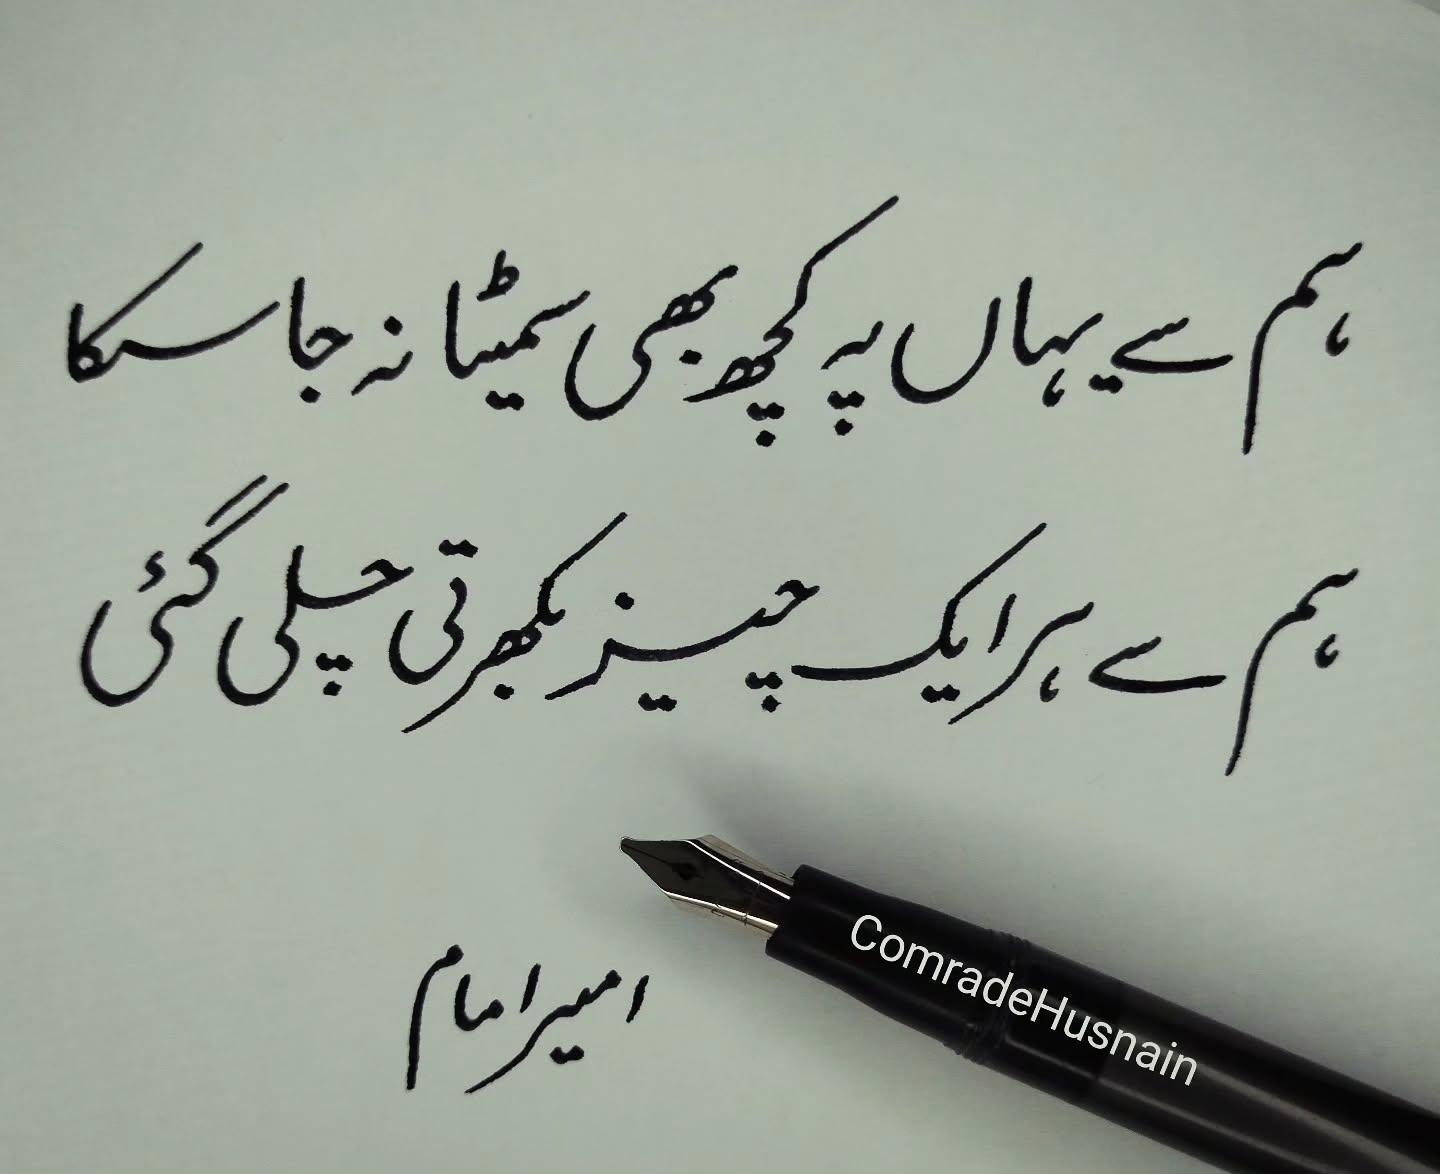 ہم سے یہاں پہ کچھ بھی سمیٹا نہ جا سکا
ہم سے ہر ایک چیز بکھرتی چلی گئی
امیر امام
ComradeHusnain